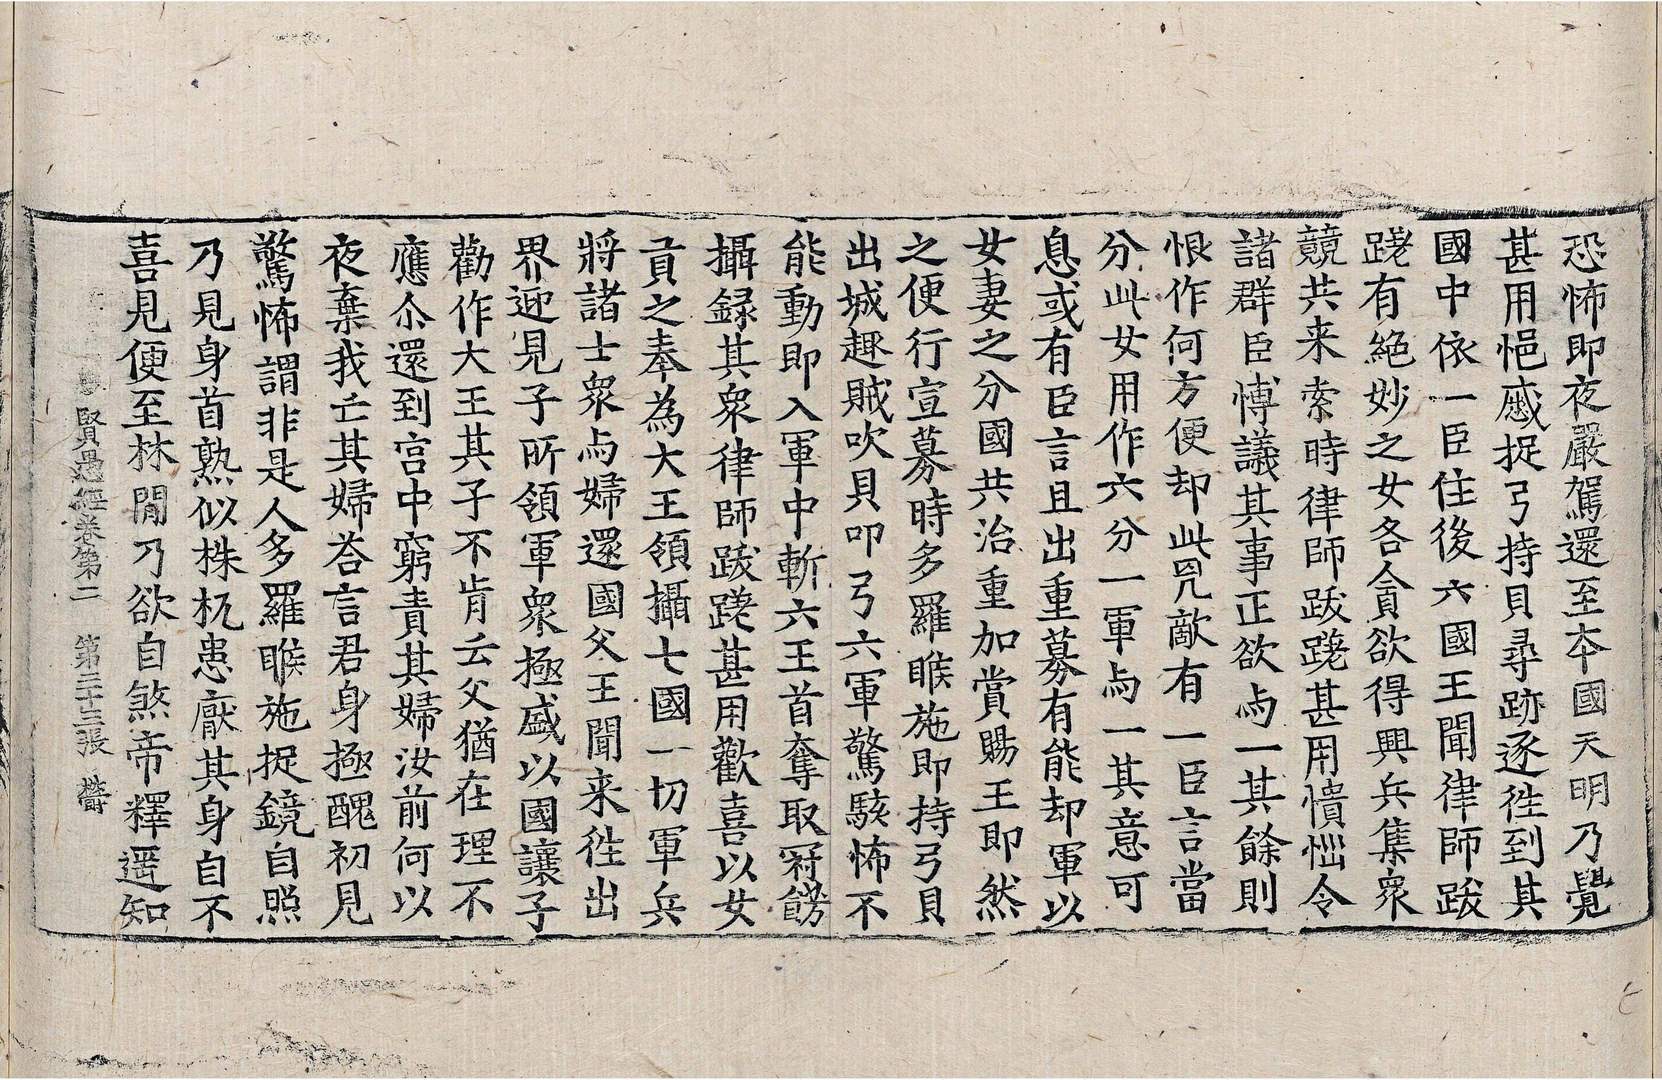 恐怖即夜嚴駕還至本國天明乃覺
甚用悒慼捉弓持貝尋跡逐徃到其
國中依一臣住後六國王聞律師跋
蹉有絕妙之女各貪欲得興兵集衆
競共来索時律師跋蹉甚用憒惱令
諸群臣愽議其事正欲与一其餘則
恨作何方便却此㓙敵有一臣言當
分此女用作六分一軍与一其意可
息或有臣言且出重募有能却軍以
女妻之分國共治重加賞賜王即然
之便行宣募時多羅睺施即持弓貝
出城趣賊吹貝叩弓六軍驚駭怖不
能動即入軍中斬六王首奪取冠餝
攝録其衆律師跋蹉甚用歡喜以女
貢之奉為大王領攝七國一切軍兵
將諸士衆与婦還國父王聞来徃出
界迎見子所領軍衆極盛以國讓子
勸作大王其子不肯云父猶在理不
應尒還到宮中窮責其婦汝前何以
夜棄我去其婦荅言君身極醜初見
驚怖謂非是人多羅睺施捉鏡自照
乃見身首熟似株杌患厭其身自不
喜見便至林間乃欲自煞帝釋遥知
賢愚經卷第二 第二十三張